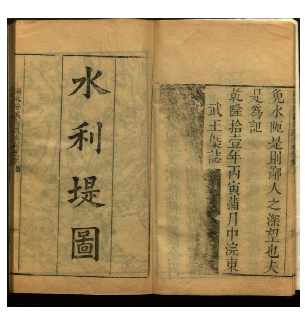 免水阨是則鄙人之深望也夫
是爲記
乾隆拾壹年丙寅蒲月中浣東
武王槩誌
水利堤圖